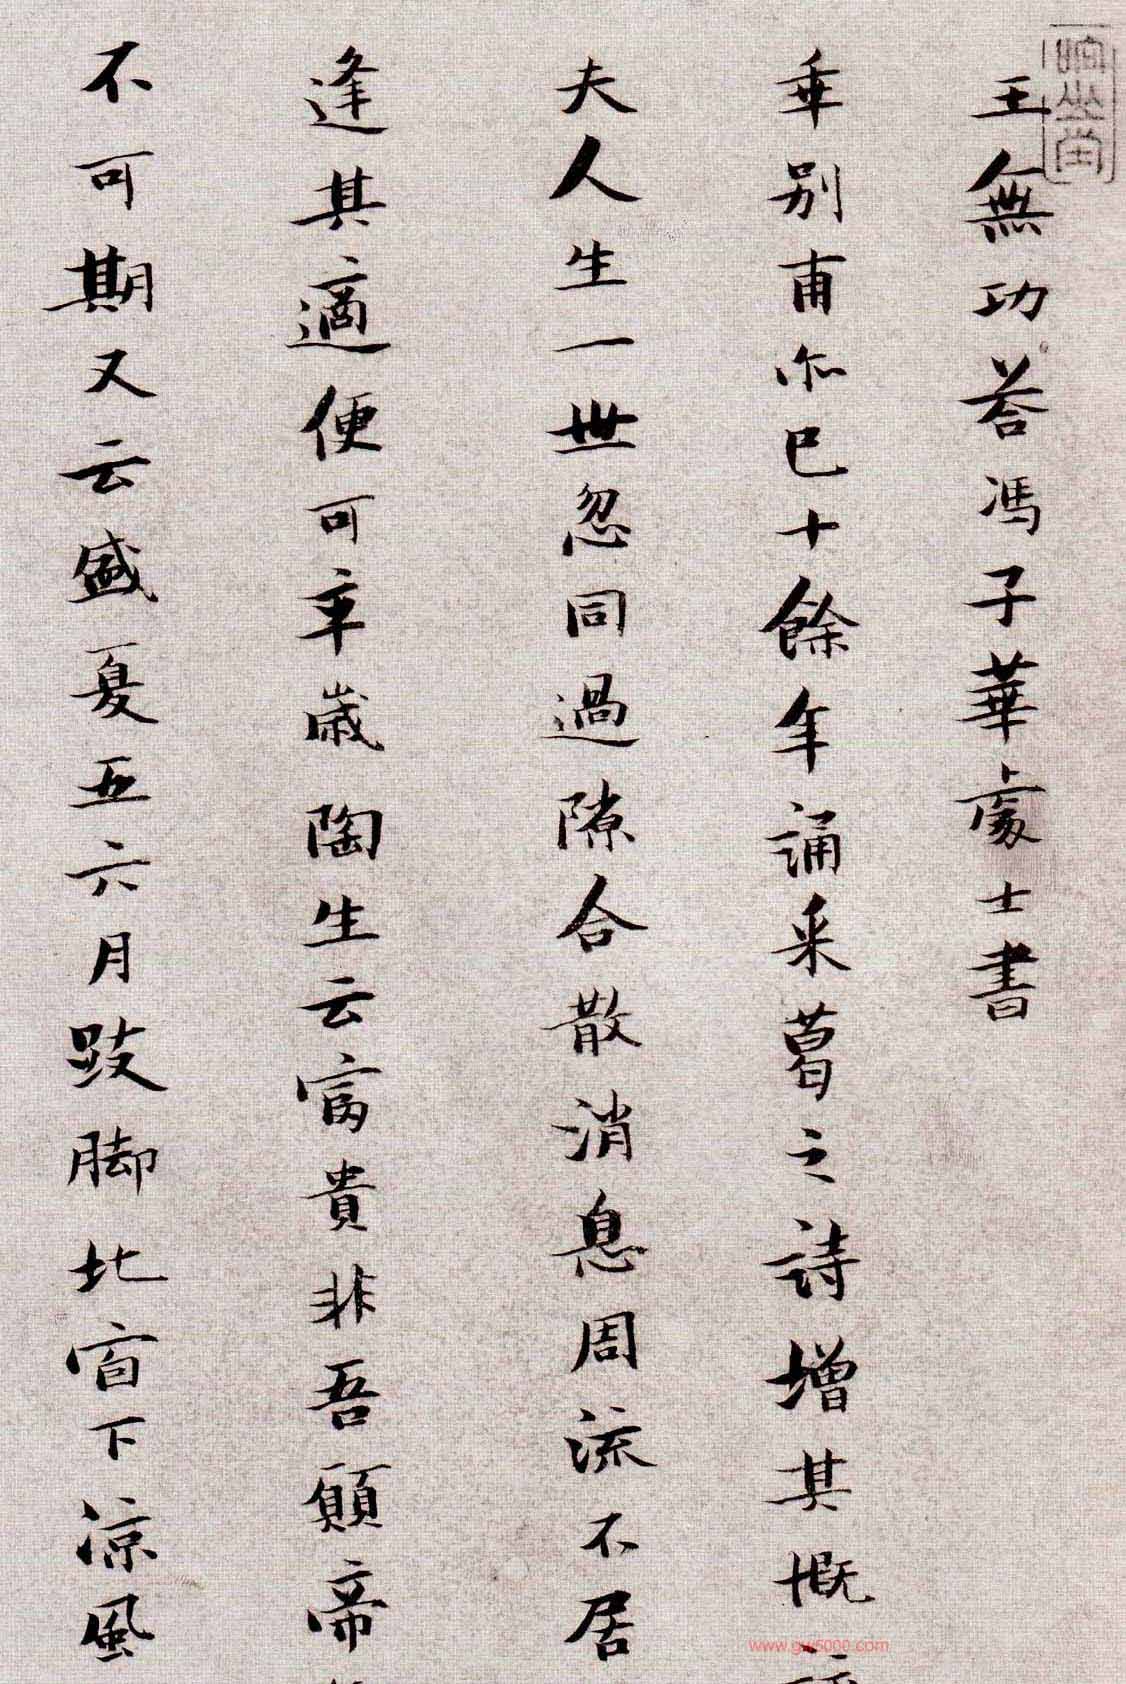 王無功荅馮子華處士書
乖別甫尒已十餘年誦采葛之詩增其慨
夫人生一世忽同過隙合散消息周流不居
逢其適便可卒歲陶生云富貴非吾願帝
不可期又云盛夏五六月跂脚北窗下涼風
www.gw5000.com